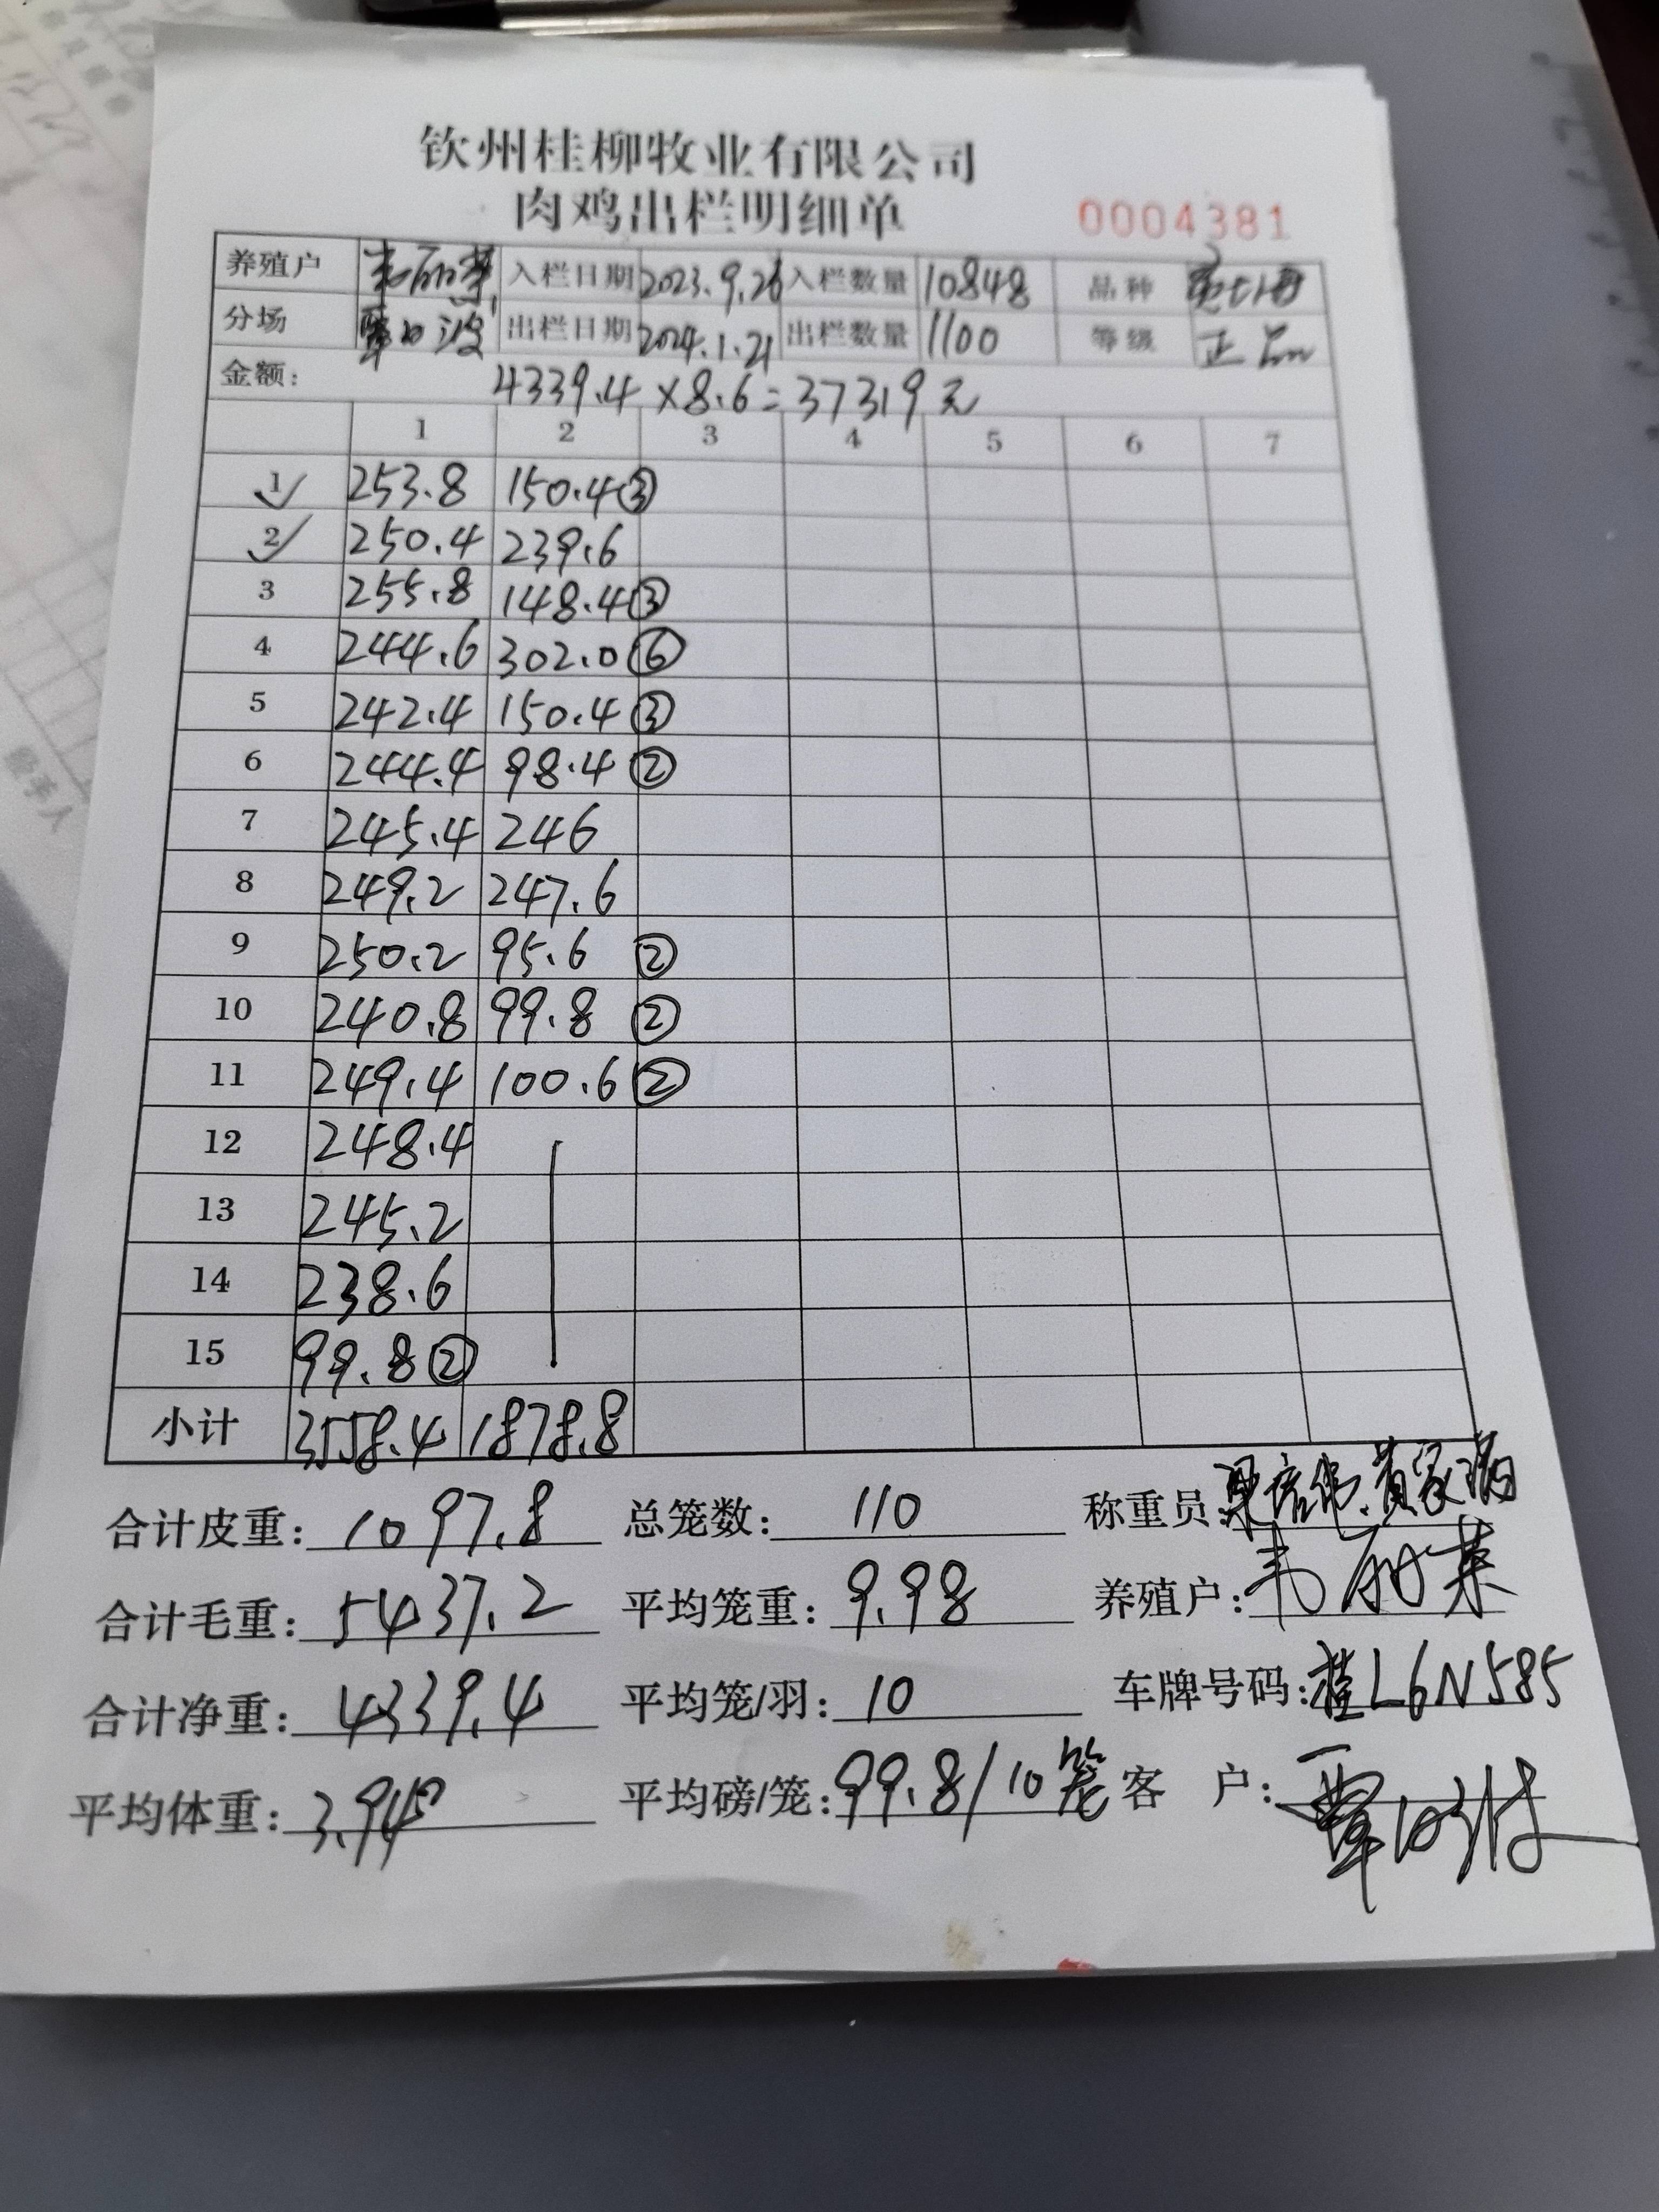 钦州桂柳牧业有限公司
肉鸡出栏明细单 0004381
养殖户 韦丽荣 入栏日期 2023.9.26 入栏数量 10848 品种
分场 出栏日期 2024.1.21 出栏数量 1100 等级 正品
金额: 4339.4×8.6=37319元
1 2 3 4 5 6 7
1 253.8 150.4③
2 250.4 239.6
3 255.8 148.4③
4 244.6 302.0⑥
5 242.4 150.4③
6 244.4 98.4②
7 245.4 246
8 249.2 247.6
9 250.2 95.6②
10 240.8 99.8②
11 249.4 100.6②
12 248.4
13 245.2
14 238.6
15 99.8②
小计 3558.4 1878.8
合计皮重: 1097.8 总笼数: 110 称重员:
合计毛重: 5437.2 平均笼重: 9.98 养殖户: 韦丽荣
合计净重: 4339.4 平均笼/羽: 10 车牌号码: 桂L6N585
平均体重: 3.945 平均磅/笼: 99.8/10笼 客 户: